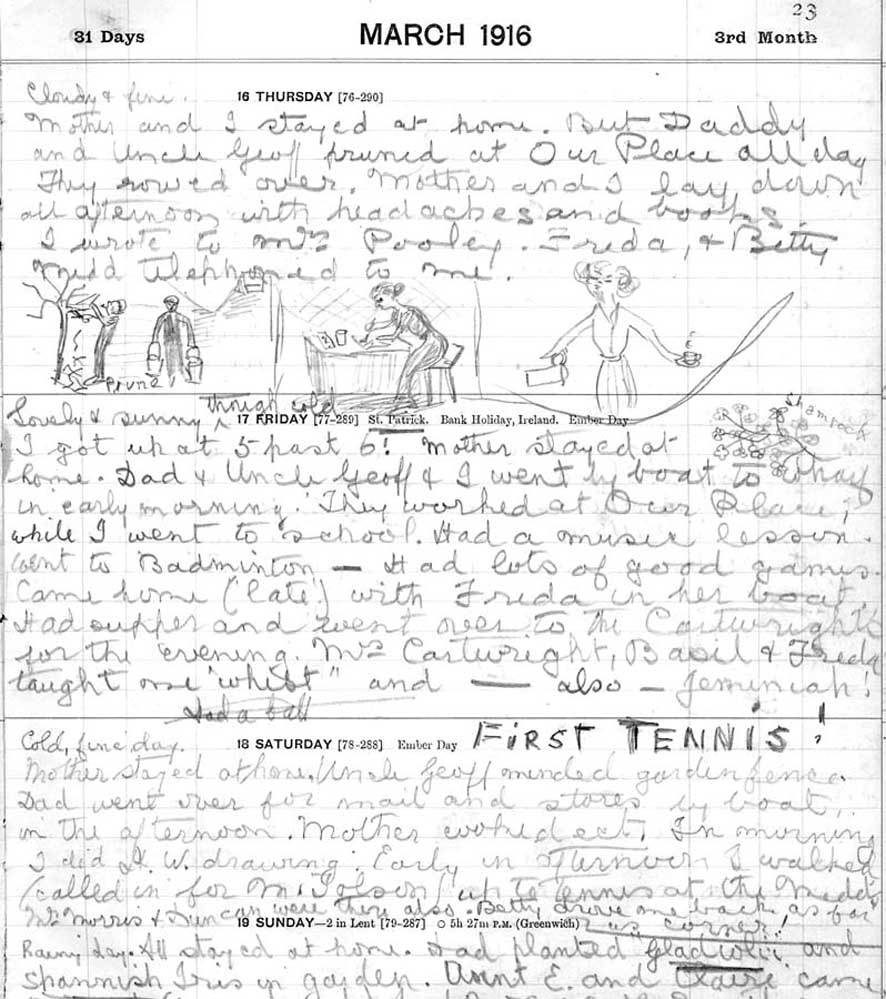 23
31 Days MARCH 1916 3rd Month
Cloudy & fine. 16 THURSDAY [76-290]
Mother and I stayed at home. But Daddy
and Uncle Geoff pruned at Our Place all day
They rowed over. Mother and I lay down
all afternoon with headaches and books.
I wrote to Mrs Pooley. Freda, & Betty
Midd telephoned to me.
Prune
Lovely & sunny though cold 17 FRIDAY [77-289] St. Patrick. Bank Holiday, Ireland. Ember Day
Shamrock
I got up at 5 past 6! Mother stayed at
home. Dad & Uncle Geoff & I went by boat to
in early morning. They worked at Our Place,
while I went to school. Had a music lesson.
Went to Badminton — Had lots of good games.
Came home (late) with Freda in her boat
Had supper and went over to the Cartwrights
for the evening. Mrs Cartwright, Basil & Freda
taught me "whist" and — also — Jeminiah!
Had a ball
Cold, fine day. 18 SATURDAY [78-288] Ember Day FIRST TENNIS!
Mother stayed at home. Uncle Geoff mended garden fence.
Dad went over for mail and stores by boat,
in the afternoon. Mother In morning
I did drawing. Early in afternoon I walked
(called in for M. Tolson) up to Tennis at the Midds
Mr Morris & Duncan were there also. Betty drove me back as far
19 SUNDAY—2 in Lent [79-287] ○ 5h 27m P.M. (Greenwich) as corner!
Rainy day. All stayed at home. Had planted Gladiolii and
Spannish Iris in garden. Aunt E. and Claire came